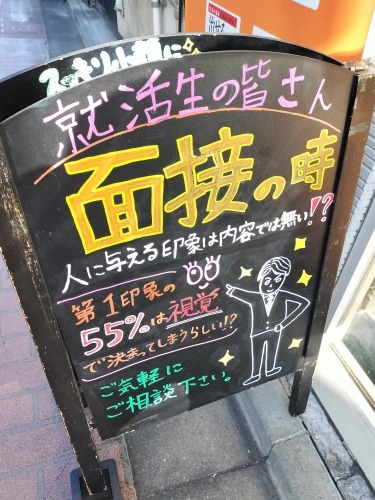 スッキリ小顔に
就活生の皆さん
面接の時
人に与える印象は内容では無い!?
第1印象の
55%は視覚
で決まってしまうらしい!?
ご気軽に
ご相談下さい。